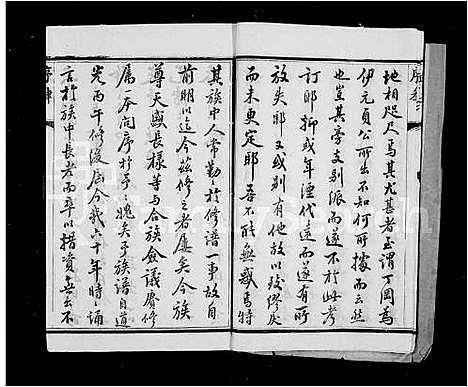 地相咫尺焉其尤甚者至謂丁岡為
伊元貞公所出不知何所據而云然
也豈其旁支別派而遂不於此考
訂耶抑或年湮代遠而遂有所
放失耶又或別有他故以致繆戾
而未更定耶吾不能無感焉特
其族中人常勤於修譜一事故自
前明以迄今茲修之者屢矣今族
尊天盛長樣等與合族僉議賡修
屬一本問序於予媿矣予族譜自道
光丙午修後屆今幾六十年時誦
言於族中長老而卒以措資無出不